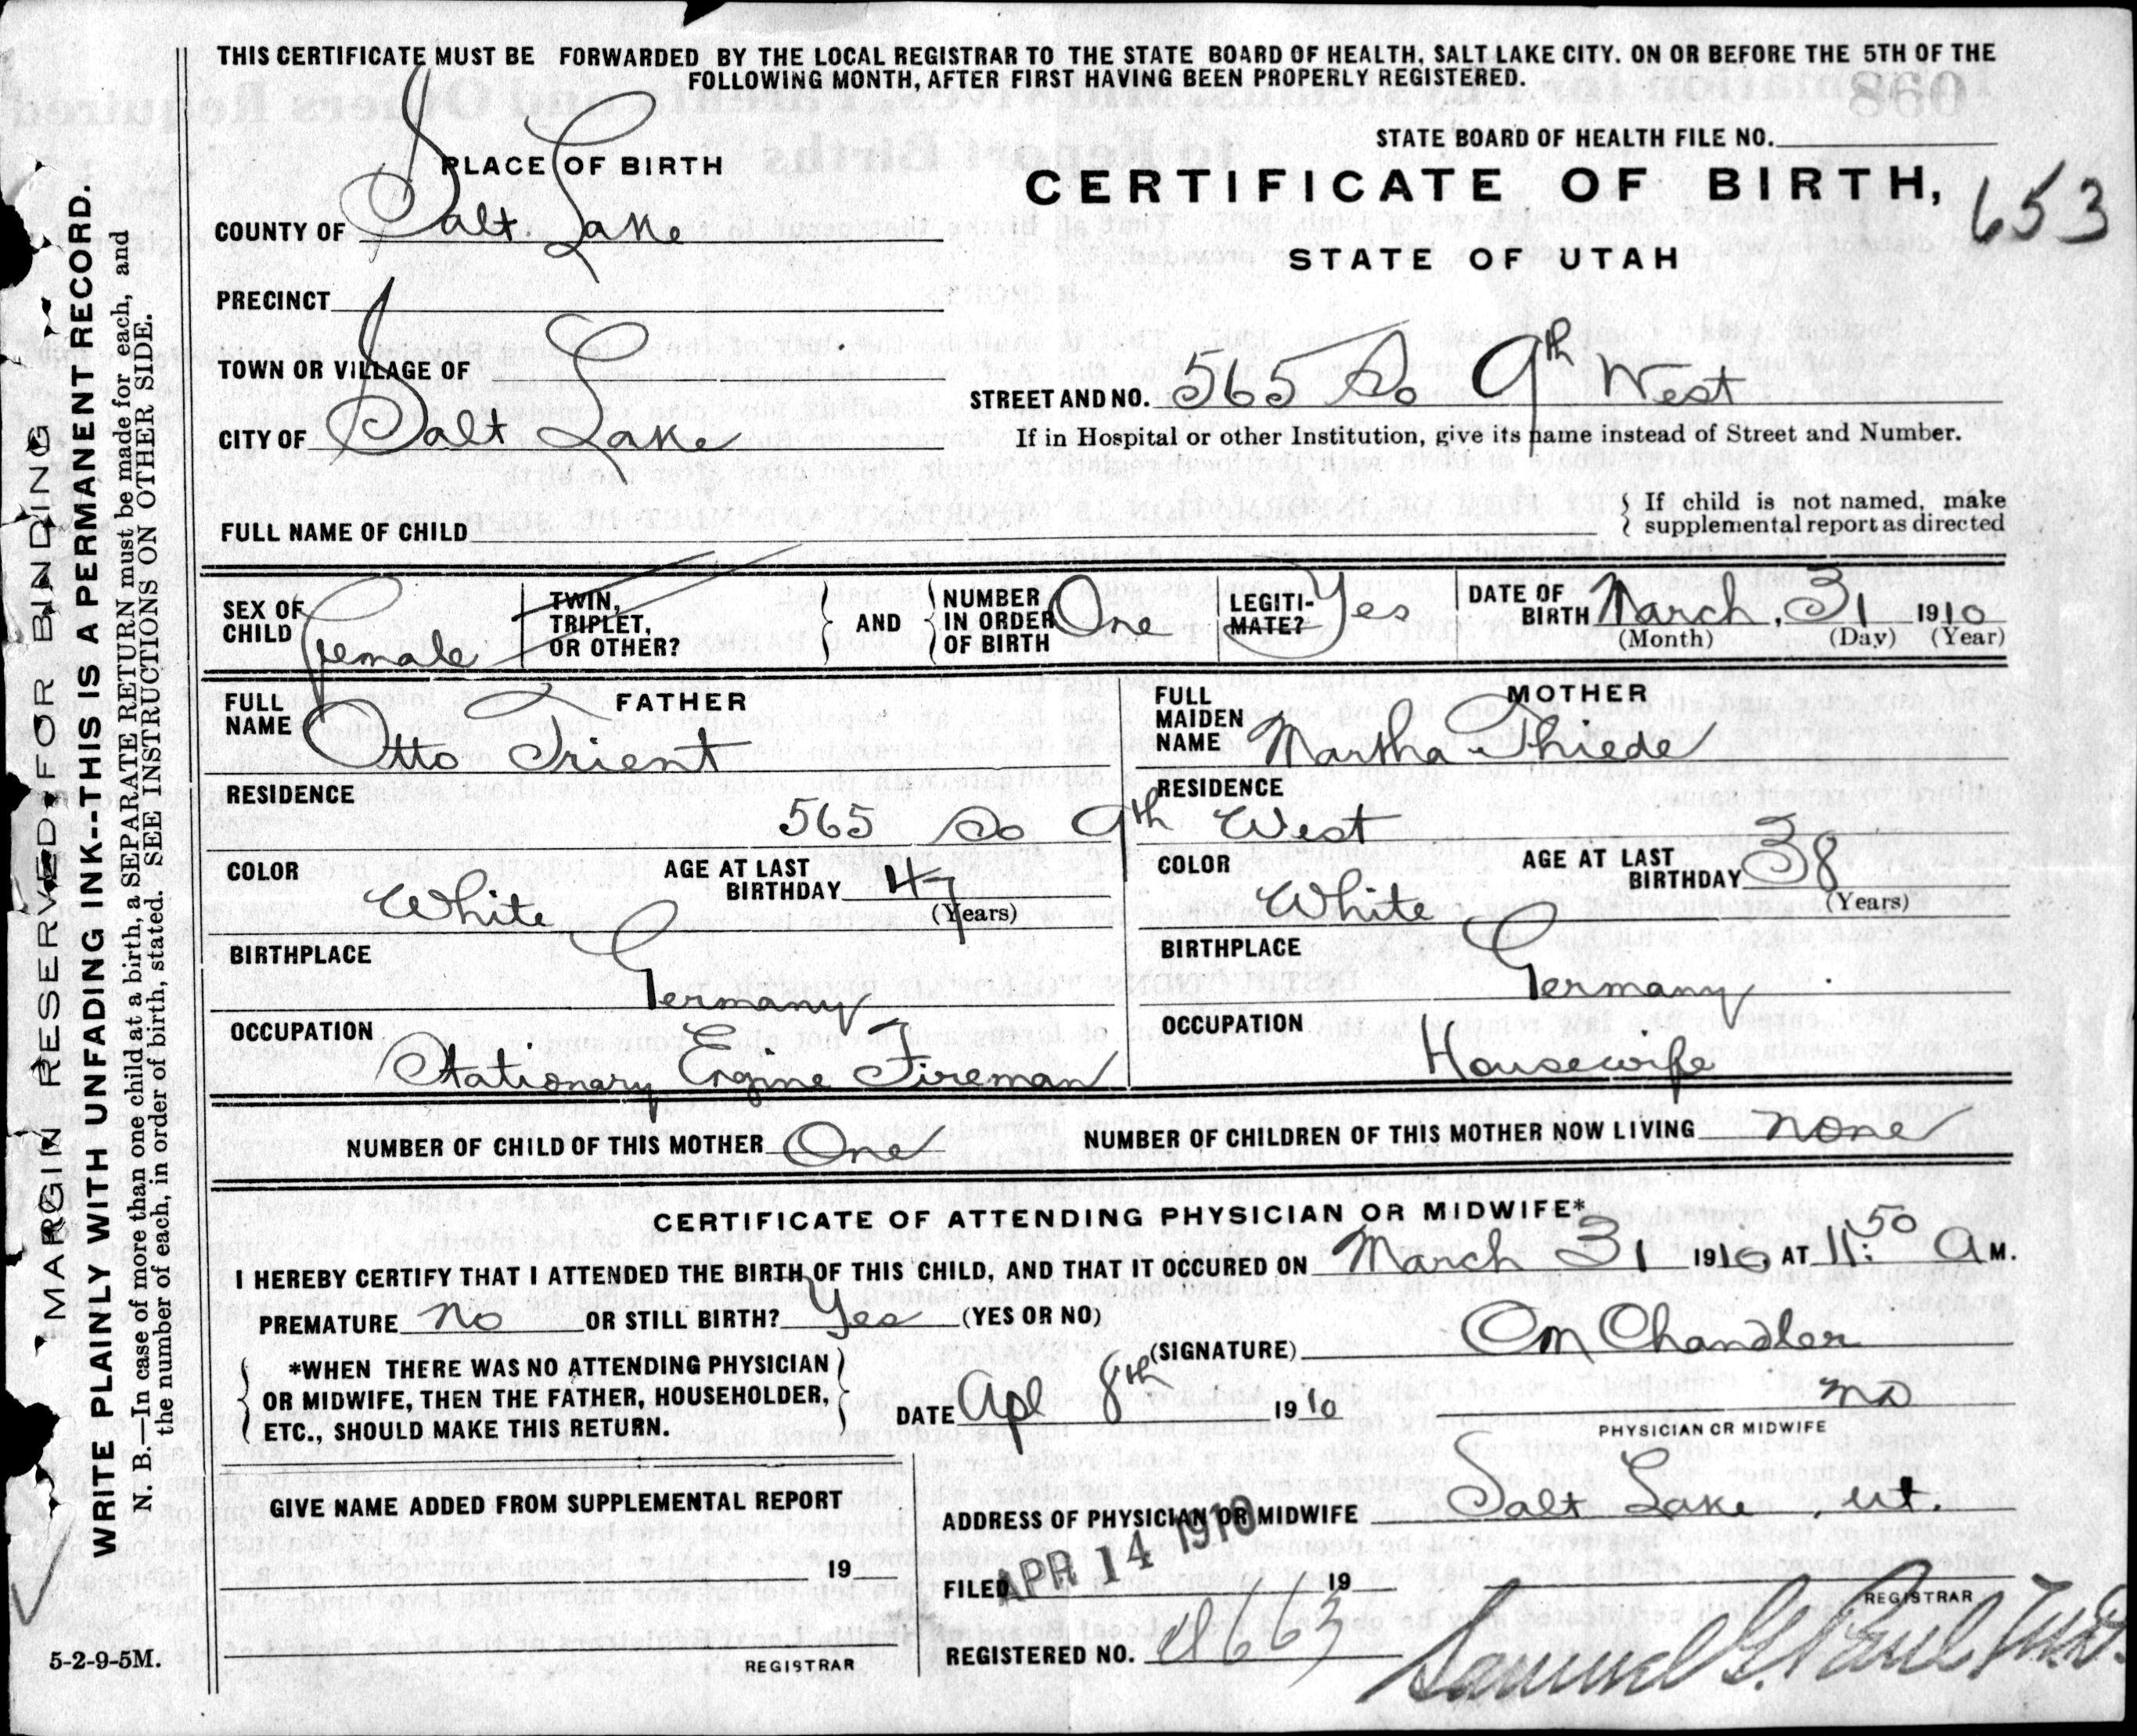 THIS CERTIFICATE MUST BE FORWARDED BY THE LOCAL REGISTRAR TO THE STATE BOARD OF HEALTH, SALT LAKE CITY, ON OR BEFORE THE 5TH OF THE
FOLLOWING MONTH, AFTER FIRST HAVING BEEN PROPERLY REGISTERED.
STATE BOARD OF HEALTH FILE NO.
PLACE OF BIRTH
CERTIFICATE OF BIRTH,
653
COUNTY OF Salt Lake
STATE OF UTAH
PRECINCT
TOWN OR VILLAGE OF
STREET AND NO. 565 So 9th West
CITY OF Salt Lake
If in Hospital or other Institution, give its name instead of Street and Number.
FULL NAME OF CHILD
If child is not named, make
supplemental report as directed
SEX OF CHILD Female
TWIN, TRIPLET, OR OTHER?
AND
NUMBER IN ORDER OF BIRTH One
LEGITI-MATE? Yes
DATE OF BIRTH March, 31 1910
(Month) (Day) (Year)
FATHER
FULL NAME Otto Trient
MOTHER
FULL MAIDEN NAME Martha Thiede
RESIDENCE
RESIDENCE
565 So 9th West
COLOR White
AGE AT LAST BIRTHDAY 47
(Years)
COLOR White
AGE AT LAST BIRTHDAY 38
(Years)
BIRTHPLACE Germany
BIRTHPLACE Germany
OCCUPATION Stationary Engine Fireman
OCCUPATION Housewife
NUMBER OF CHILD OF THIS MOTHER One
NUMBER OF CHILDREN OF THIS MOTHER NOW LIVING none
CERTIFICATE OF ATTENDING PHYSICIAN OR MIDWIFE*
I HEREBY CERTIFY THAT I ATTENDED THE BIRTH OF THIS CHILD, AND THAT IT OCCURED ON March 31 1910, AT 11:50 A M.
PREMATURE no OR STILL BIRTH? Yes (YES OR NO)
(SIGNATURE) Om Chandler
*WHEN THERE WAS NO ATTENDING PHYSICIAN
OR MIDWIFE, THEN THE FATHER, HOUSEHOLDER,
ETC., SHOULD MAKE THIS RETURN.
DATE Apl 8th 1910
MD
PHYSICIAN OR MIDWIFE
GIVE NAME ADDED FROM SUPPLEMENTAL REPORT
ADDRESS OF PHYSICIAN OR MIDWIFE Salt Lake, ut.
19
FILED APR 14 1910 19
REGISTRAR
REGISTERED NO. 663
Samuel G. Paul
REGISTRAR
5-2-9-5M.
MARGIN RESERVED FOR BINDING
WRITE PLAINLY WITH UNFADING INK--THIS IS A PERMANENT RECORD.
N. B.—In case of more than one child at a birth, a SEPARATE RETURN must be made for each, and
the number of each, in order of birth, stated. SEE INSTRUCTIONS ON OTHER SIDE.